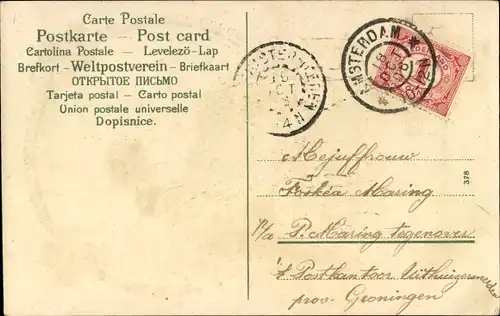 Carte Postale
Postkarte — Post card
Cartolina Postale — Levelező-Lap
Brefkort - Weltpostverein - Briefkaart
ОТКРЫТОЕ ПИСЬМО
Tarjeta postal — Carto postal
Union postale universelle
Dopisnice.
AMSTERDAM
378
Mejuffrouw
Foskéa Maring
P/a P. Maring tegenover
't Postkantoor Uithuizermeeden
prov. Groningen